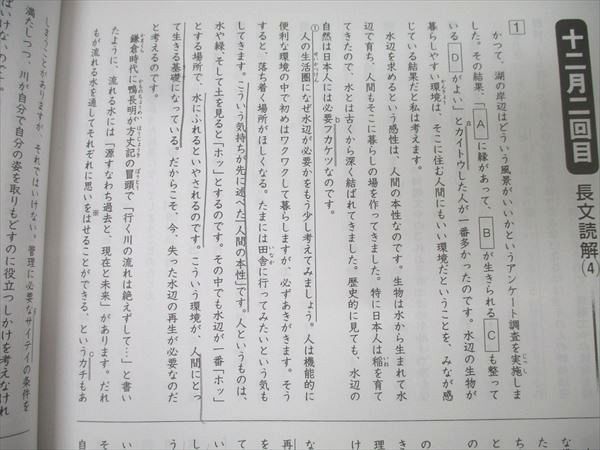 十二月二回目 長文読解④
1
かつて、湖の岸辺はどういう風景がいいかというアンケート調査を実施しま
した。その結果、「Aに縁があって、Bが生きられるCも整って
いるDがよい」とカイトウした人が一番多かったのです。水辺の生物が
暮らしやすい環境は、そこに住む人間にもいい環境だということを、みなが感
じている結果だと私は考えます。
水辺を求めるという感性は、人間の本性なのです。生物は水から生まれて水
辺で育ち、人間もそこに暮らしの場を作ってきました。特に日本人は稲を育て
てきたので、水とは古くから深く結ばれてきました。歴史的に見ても、水辺の
自然は日本人には必要フカケツなのです。
①人の生活圏になぜ水辺が必要かをもう少し考えてみましょう。人は機能的に
便利な環境の中で初めはワクワクして暮らしますが、必ずあきがきます。そう
すると、落ち着く場所がほしくなる。たまには田舎に行ってみたいという気も
してきます。こういう気持ちが先に述べた「人間の本性」です。人というものは、
水や緑、そして土を見ると「ホッ」とするのです。その中でも水辺が一番「ホッ」
とする場所で、水にふれるといやされるのです。こういう環境が、人間にとっ
て生きる基礎になっている。だからこそ、今、失った水辺の再生が必要なのだ
と考えるのです。
鎌倉時代に鴨長明が方丈記の冒頭で「行く川の流れは絶えずして…」と書い
たように、流れる水には「源すなわち過去と、現在と未来」があります。だれ
もが流れる水を通してそれぞれに思いをはせることができる、というカチもあ
しまうことがありますが、それではいけない。管理に必要なサイテイの条件を
満たしつつ、川が自分で自分の姿を取りもどすのに役立つしかけを考えなけれ
ばいけないのです。